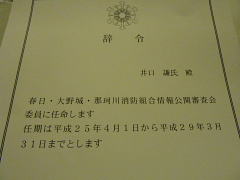 辞令
井口 謙氏 殿
春日・大野城・那珂川消防組合情報公開審査会
委員に任命します
任期は平成25年4月1日から平成29年3月
31日までとします